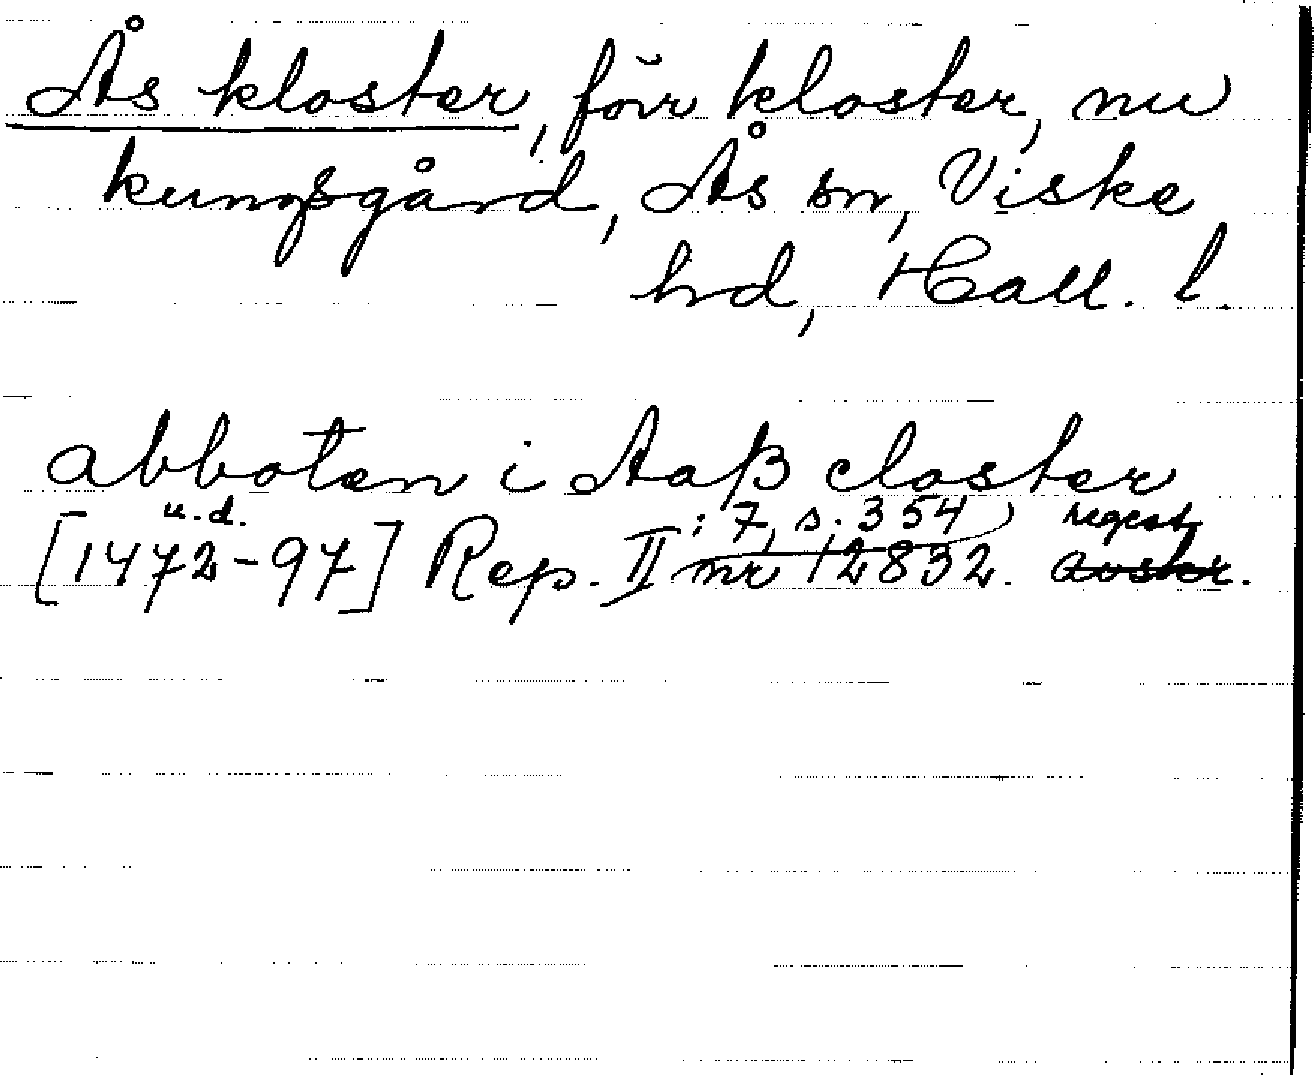 Ås kloster, förr kloster, nu
kungsgård, Ås sn, Viske
hd, Hall. l.
abboten i Aaß closter
u.d. : 7, s. 354 regest
[1472-97] Rep. II nr 12832. avskr.